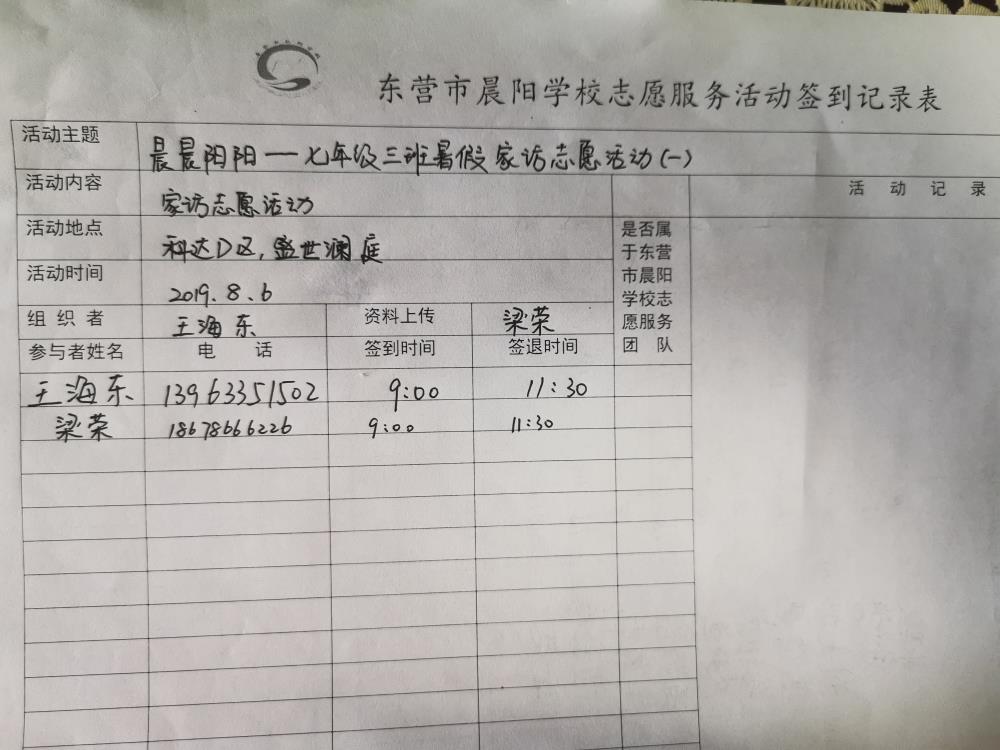 东营市晨阳学校志愿服务活动签到记录表
活动主题 晨晨阳阳一七年级三班暑假家访志愿活动(一)
活动内容 家访志愿活动
活动地点 科达D区,盛世澜庭
活动时间 2019.8.6
组织者 王海东 资料上传 梁荣
参与者姓名 电话 签到时间 签退时间
是否属
于东营
市晨阳
学校志
愿服务
团队
活动记录
王海东 13963351502 9:00 11:30
梁荣 18678666226 9:00 11:30